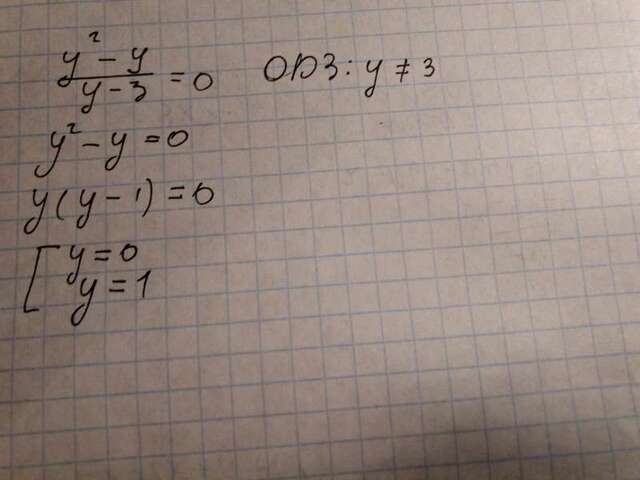 (y² - y)/(y - 3) = 0 ОДЗ: y ≠ 3
y² - y = 0
y(y - 1) = 0
[ y = 0
y = 1